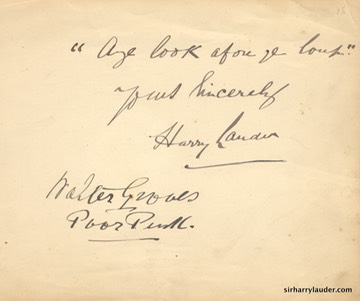 " Aye look afore ye loup."
Yours Sincerely
Harry Lauder
Walter Groves
Poor Punk.
sirharrylauder.com